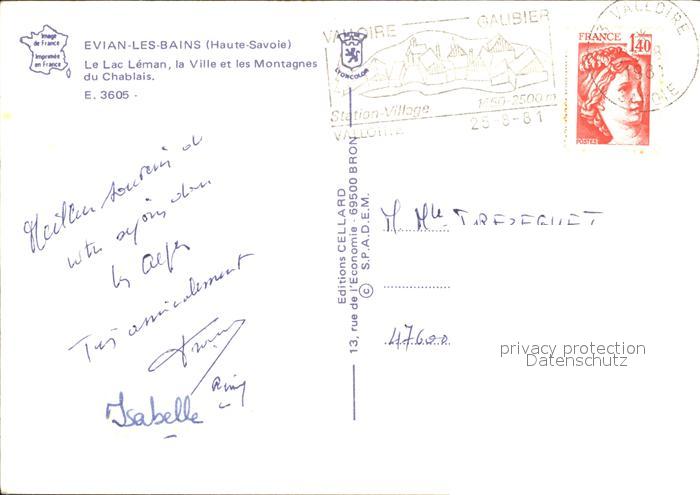 Image
de France
Imprimée
en France
EVIAN-LES-BAINS (Haute-Savoie)
Le Lac Léman, la Ville et les Montagnes
du Chablais.
E. 3605 -
Meilleur souvenir de
notre séjour dans
les Alpes
Très amicalement
Isabelle
LYONCOLOR
Editions CELLARD
13, rue de l'Economie - 69500 BRON
© S.P.A.D.E.M.
VALLOIRE GALIBIER
Station-Village 1450-2500m
VALLOIRE 25-8-81
VALLOIRE
SAVOIE
FRANCE
1,40
POSTES
M. Mlle
47600
privacy protection
Datenschutz